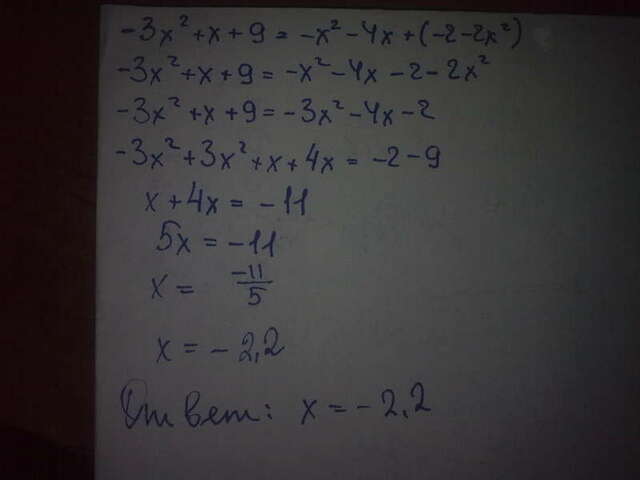 -3x²+x+9=-x²-4x+(-2-2x²)
-3x²+x+9=-x²-4x-2-2x²
-3x²+x+9=-3x²-4x-2
-3x²+3x²+x+4x=-2-9
x+4x=-11
5x=-11
x= -11/5
x=-2,2
Ответ: x=-2,2